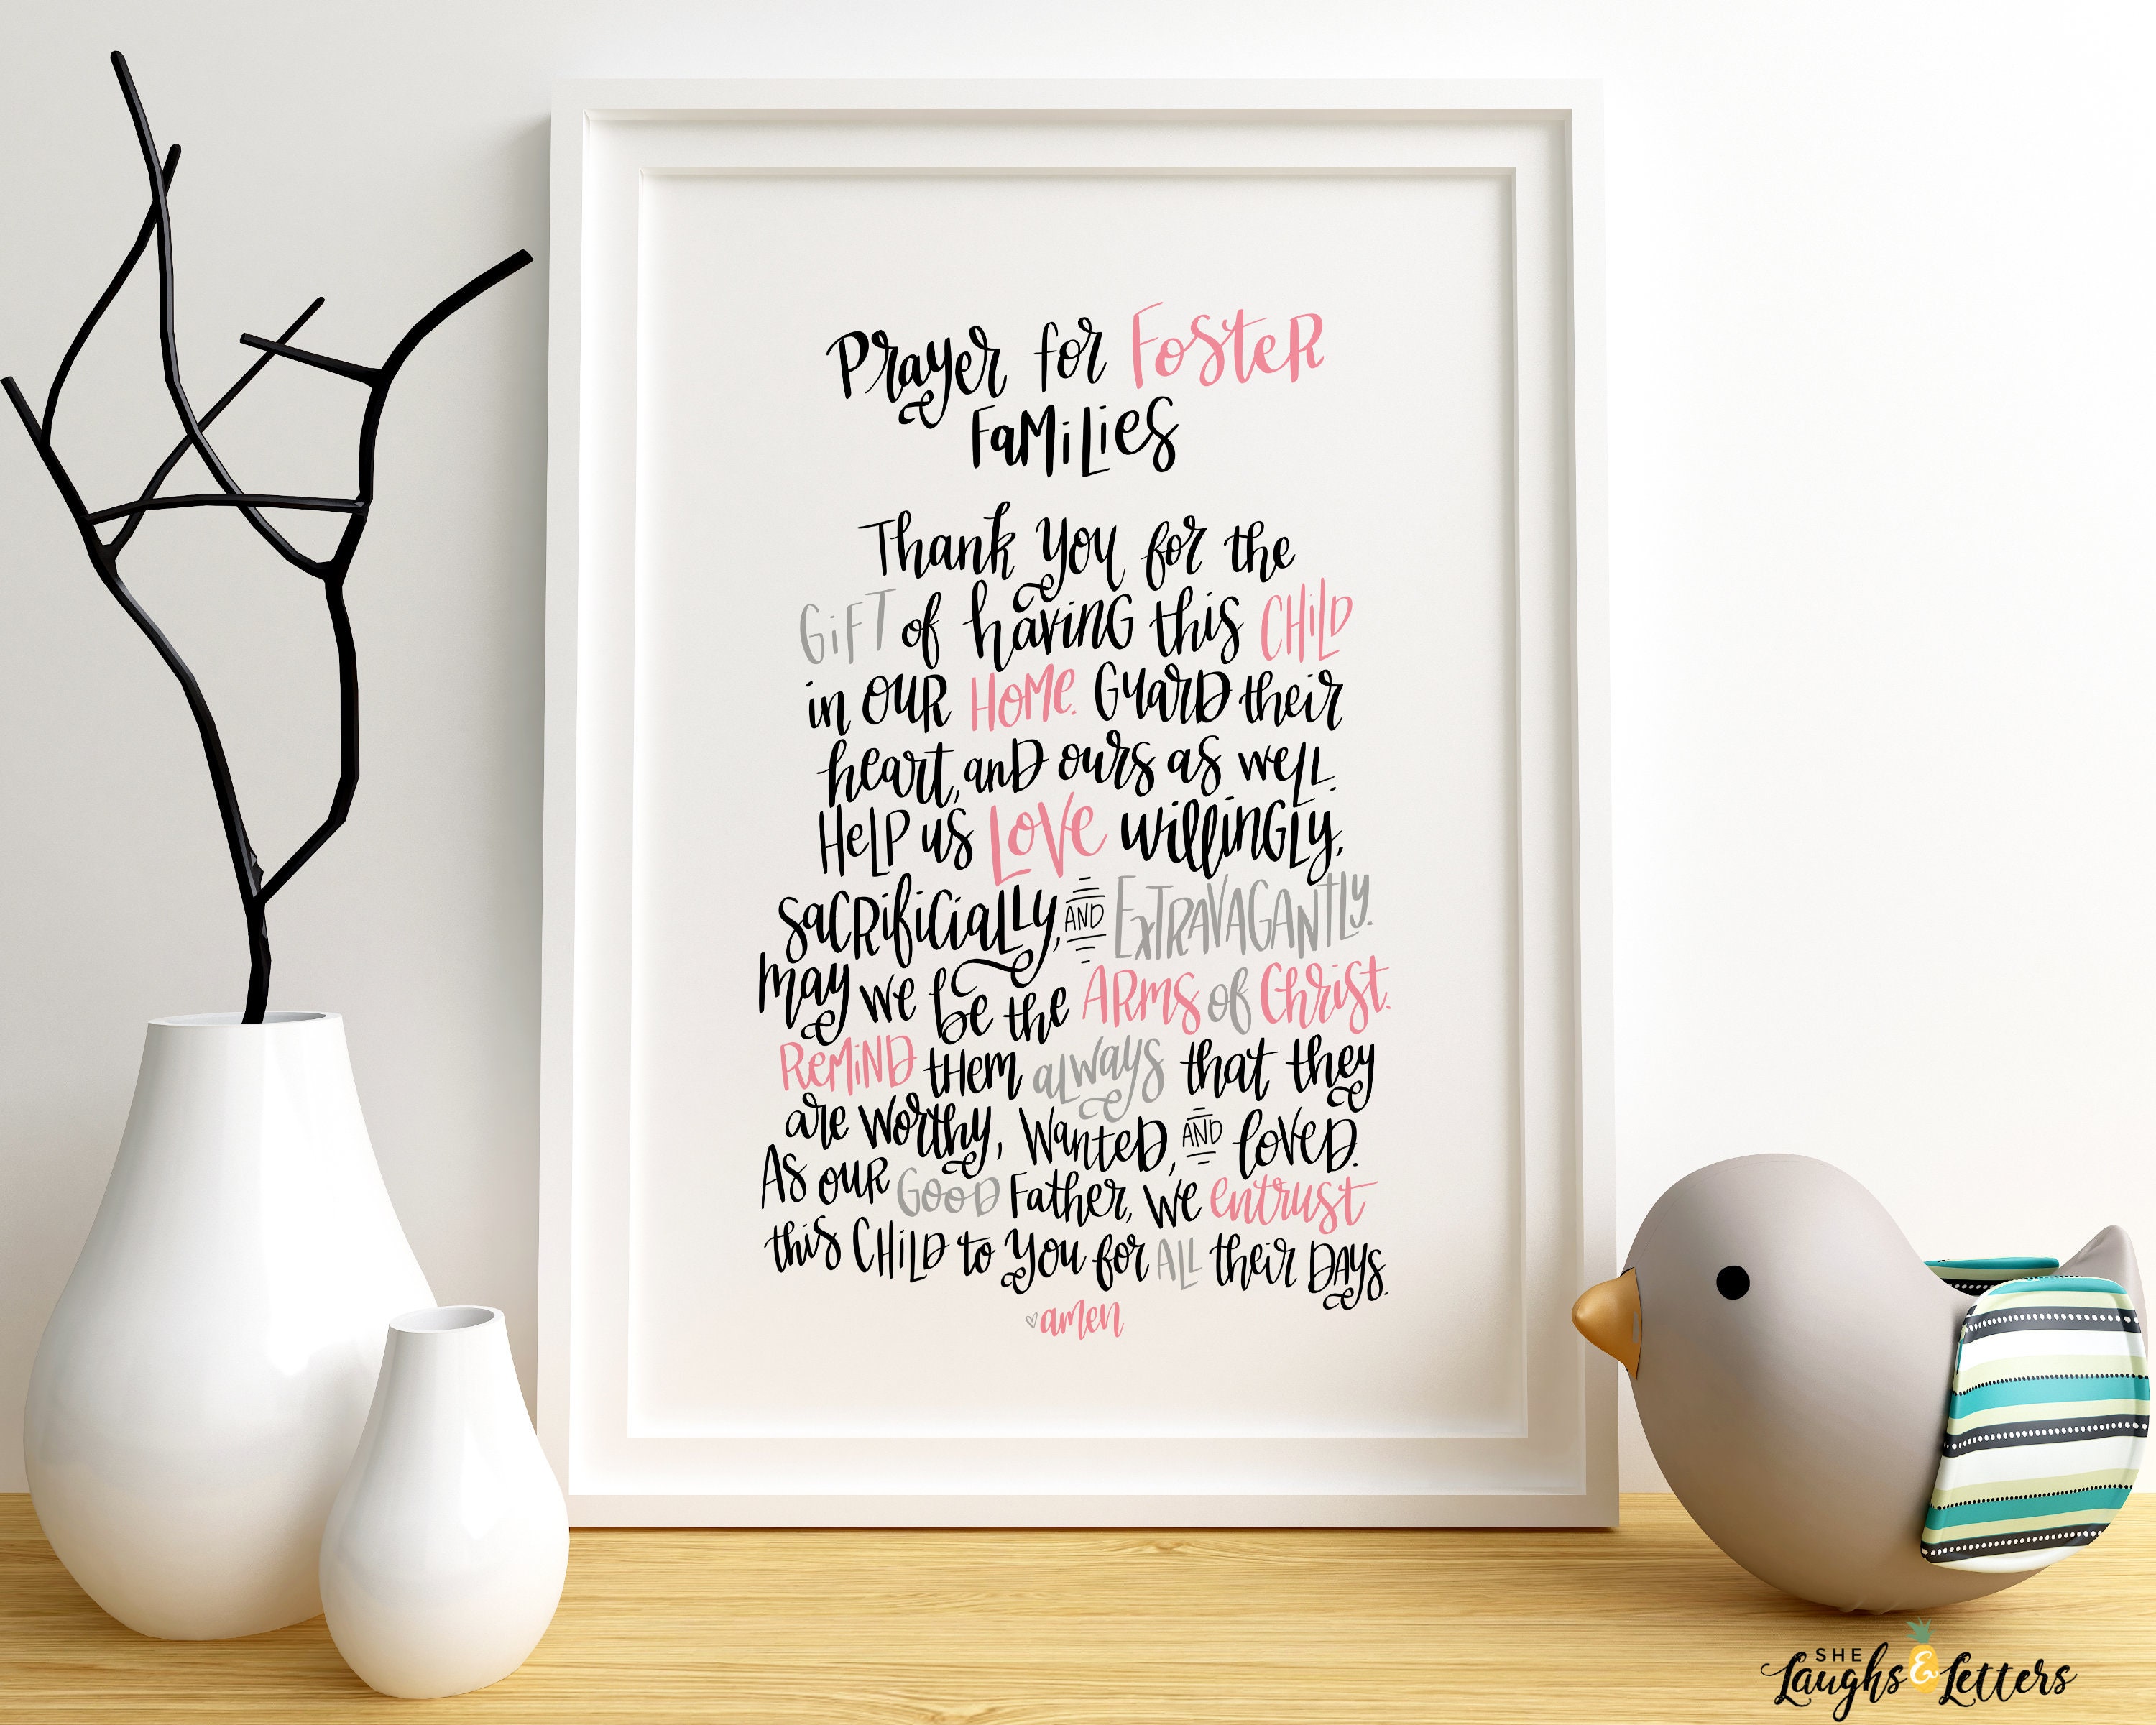 Prayer for Foster
Families
Thank you for the
Gift of having this Child
in our Home. Guard their
heart, and ours as well.
Help us Love willingly,
sacrificially, and Extravagantly.
May we be the Arms of Christ.
Remind them always that they
are worthy, Wanted, and loved.
As our Good Father, we entrust
this Child to you for All their Days.
♡amen
SHE
Laughs & Letters